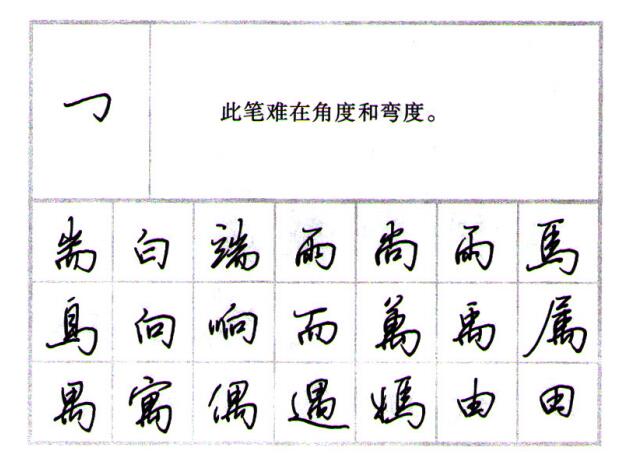 此笔难在角度和弯度。
耑 白 端 两 尚 雨 馬
向 响 而 萬 禹 属
禺 寓 偶 遇 媽 由 田